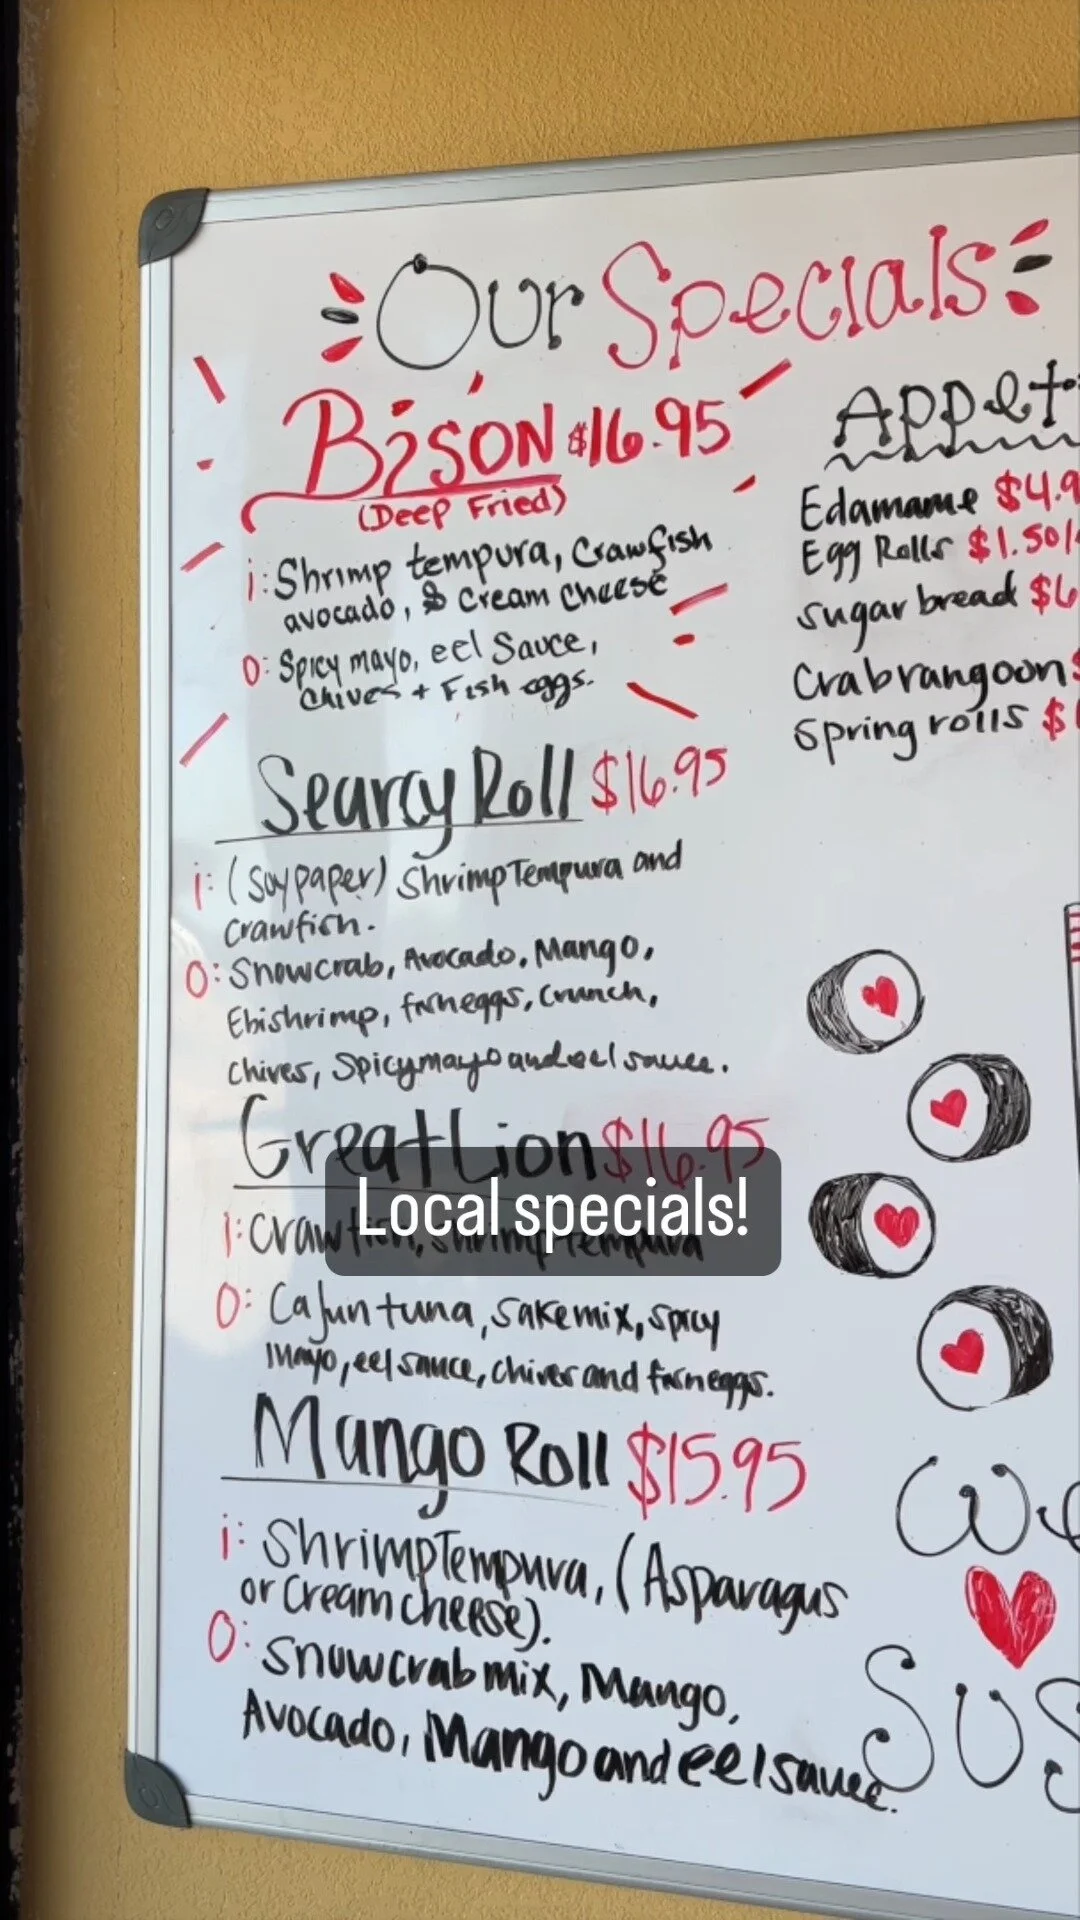 Our Specials
Bison $16.95
(Deep Fried)
i: Shrimp tempura, Crawfish
avocado, & Cream Cheese
O: Spicy mayo, eel Sauce,
Chives + Fish eggs.
Searcy Roll $16.95
i: (Soy paper) Shrimp Tempura and
Crawfish.
O: Snowcrab, Avocado, Mango,
Ebishrimp, fisheggs, Crunch,
Chives, Spicymayo and eel sauce.
Great Lion $16.95
Local specials!
I: Crawfish, Shrimp Tempura
O: Cajun tuna, sakemix, spicy
mayo, eel sauce, chives and fisheggs.
Mango Roll $15.95
i: Shrimp Tempura, (Asparagus
or Cream cheese).
O: Snowcrab mix, Mango,
Avocado, Mango and eel sauce.
Appet
Edamame $4.9
Egg Rolls $1.50/
Sugar bread $6
Crab rangoon $
Spring rolls $
We
Sus